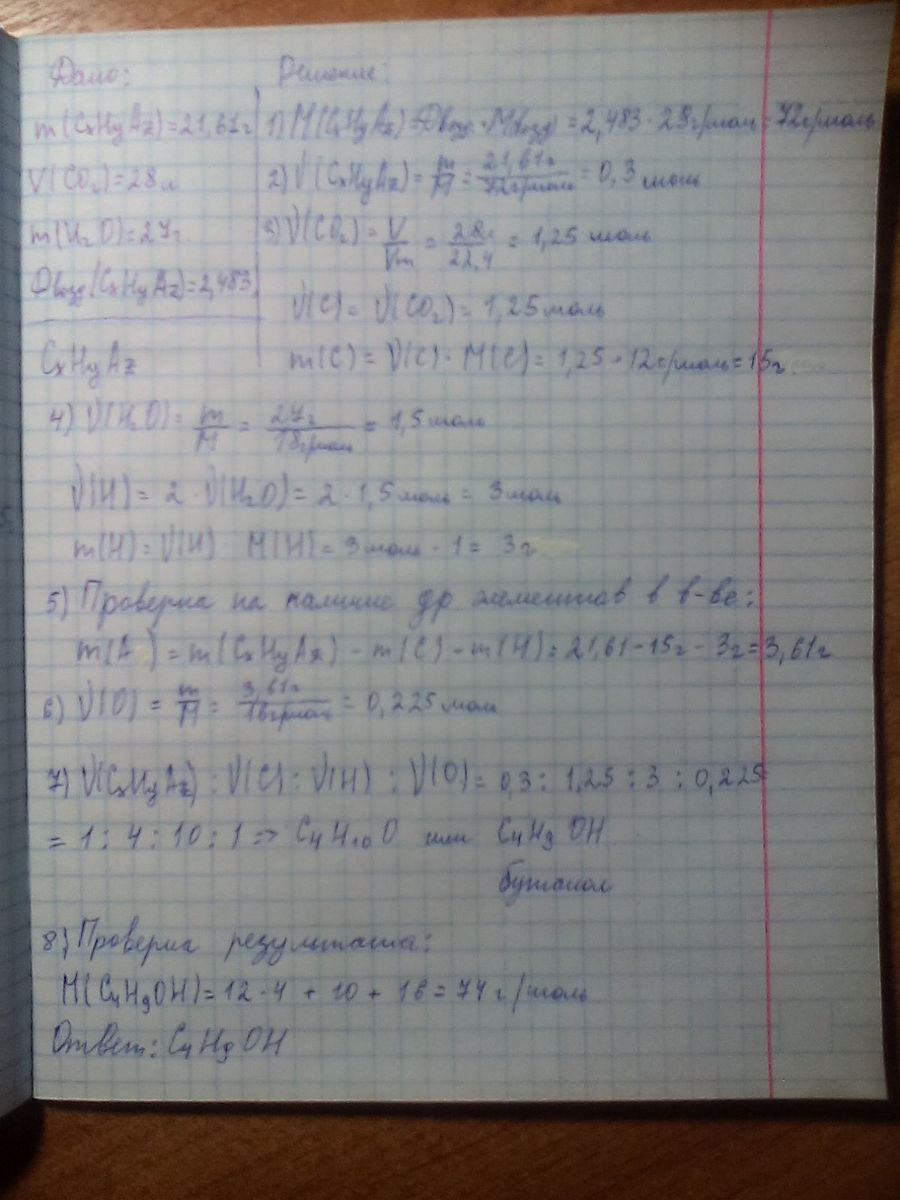 Дано: Решение:
m(CxHyAz)=21,61г 1) M(CxHyAz)=Dвозд·M(возд)=2,483·29г/моль=72г/моль
V(CO₂)=28л 2) ν(CxHyAz)=m/M=21,61г/72г/моль=0,3 моль
m(H₂O)=27г. 3) ν(CO₂)=V/Vm=28л/22,4=1,25 моль
Dвозд(CxHyAz)=2,483 ν(C)=ν(CO₂)=1,25моль
CxHyAz m(C)=ν(C)·M(C)=1,25·12г/моль=15г.
4) ν(H₂O)=m/M=27г/18г/моль=1,5моль
ν(H)=2·ν(H₂O)=2·1,5моль=3моль
m(H)=ν(H)·M(H)=3моль·1=3г
5) Проверка на наличие др элементов в в-ве:
m(A)=m(CxHyAz)-m(C)-m(H)=21,61-15г-3г=3,61г
6) ν(O)=m/M=3,61г/16г/моль=0,225моль
7) ν(CxHyAz):ν(C):ν(H):ν(O)=0,3:1,25:3:0,225
=1:4:10:1=>C₄H₁₀O или C₄H₉OH
бутанол
8) Проверка результата:
M(C₄H₉OH)=12·4+10+16=74г/моль
Ответ: C₄H₉OH